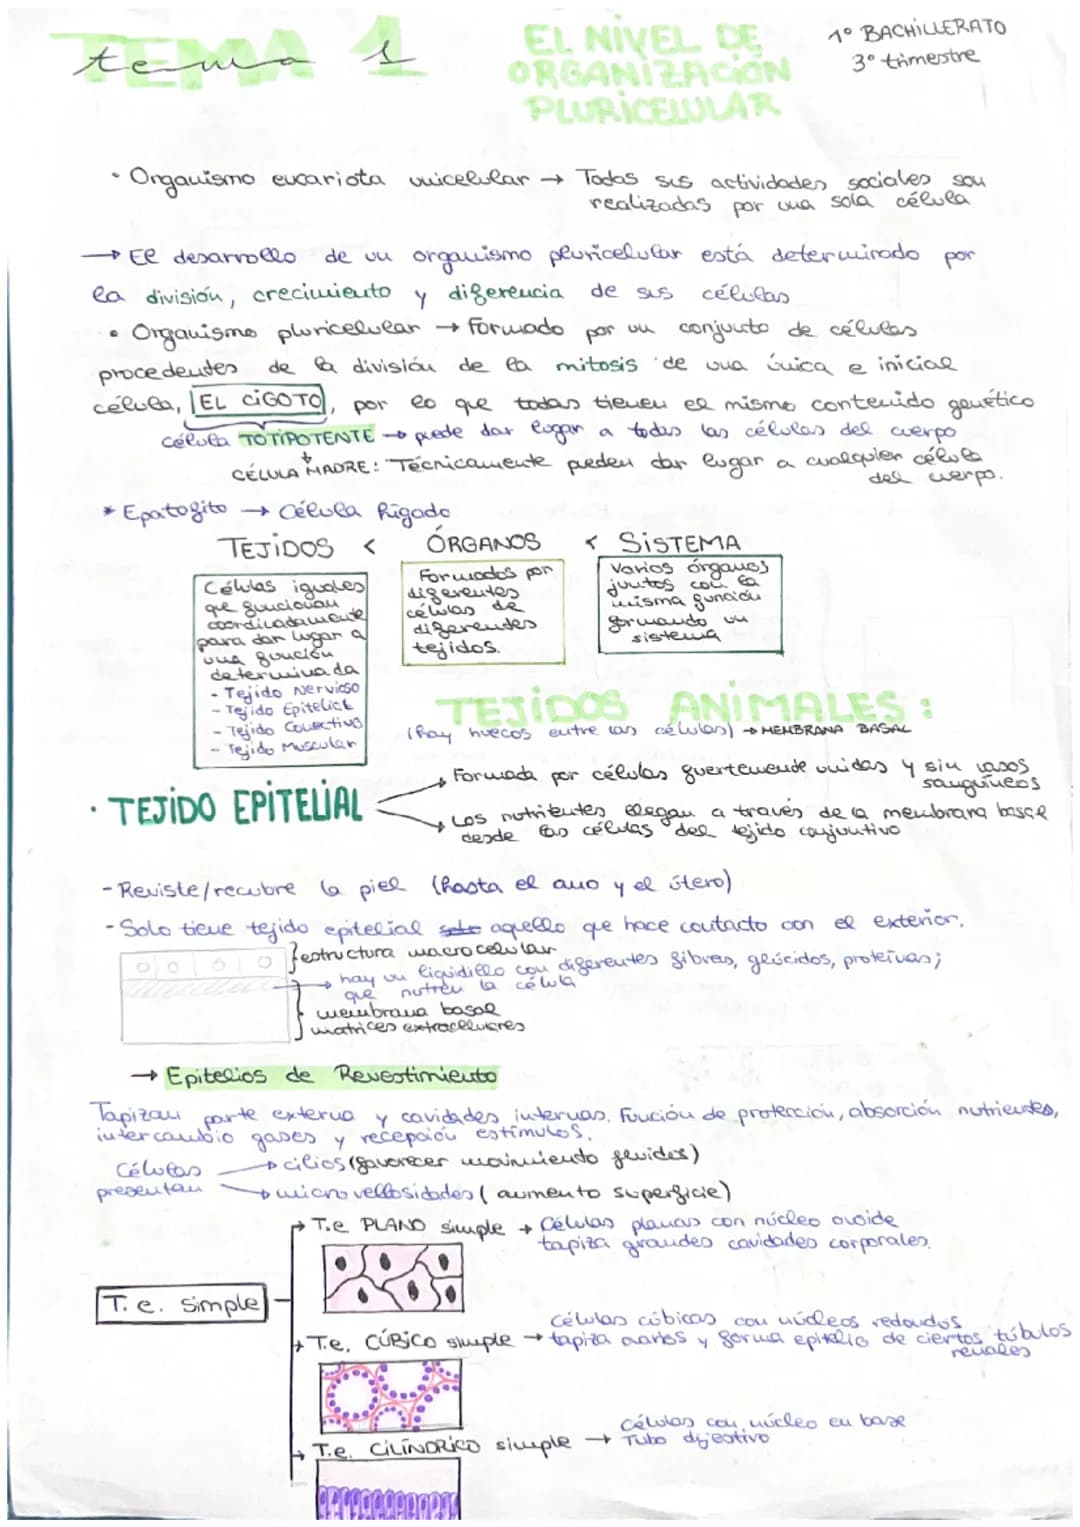 TEMA 1
tema 1
EL NIVEL DE
ORGANIZACIÓN
PLURICELULAR
1º BACHILLERATO
3º trimestre
· Organismo eucariota unicelular → Todas sus actividades sociales son
realizadas por una sola célula
→ El desarrollo de un organismo pluricelular está determinado por
la división, crecimiento y diferencia de sus células
• Organismo pluricelular → Formado por un conjunto de células
procedentes de la división de la mitosis de una única e inicial
célula, EL CIGOTO, por lo que todas tienen el mismo contenido genético
célula TOTIPOTENTE → puede dar lugar a todas las células del cuerpo
CÉLULA MADRE: Técnicamente pueden dar lugar a cualquier célula
del cuerpo.
* Epatofito → Célula hígado
TEJIDOS < ÓRGANOS < SISTEMA
Células iguales
que funcionan
coordinadamente
para dar lugar a
una función
determinada
- Tejido Nervioso
- Tejido Epitelial
- Tejido Conectivo
- Tejido Muscular
Formados por
diferentes
células de
diferentes
tejidos.
Varios órganos
juntos con la
misma función
formando un
sistema
TEJIDOS ANIMALES:
(hay huecos entre las células) → MEMBRANA BASAL
· TEJIDO EPITELIAL
→ Formada por células fuertemente unidas y sin vasos
sanguíneos
→ Los nutrientes llegan a través de la membrana basal
desde las células del tejido conjuntivo
- Reviste/recubre la piel (hasta el ano y el útero)
- Solo tiene tejido epitelial aquello que hace contacto con el exterior.
estructura macrocelular
→ hay un liquidillo con diferentes fibras, glúcidos, proteínas;
que nutren la célula
membrana basal
matrices extracelulares
→ Epitelios de Revestimiento
Tapizan parte externa y cavidades internas. Función de protección, absorción nutrientes,
intercambio gases y recepción estímulos.
Células
presentan
→ cilios (favorecer movimiento fluidos)
→ microvellosidades (aumento superficie)
T.e. simple
→ T.e PLANO simple → Células planas con núcleo ovoide
tapiza grandes cavidades corporales.
células cúbicas con núcleos redondos
→ T.e. CÚBICO simple → tapiza ovarios y forma epitelio de ciertos túbulos
renales
Células con núcleo en base
→ T.e. CILÍNDRICO simple → Tubo digestivo